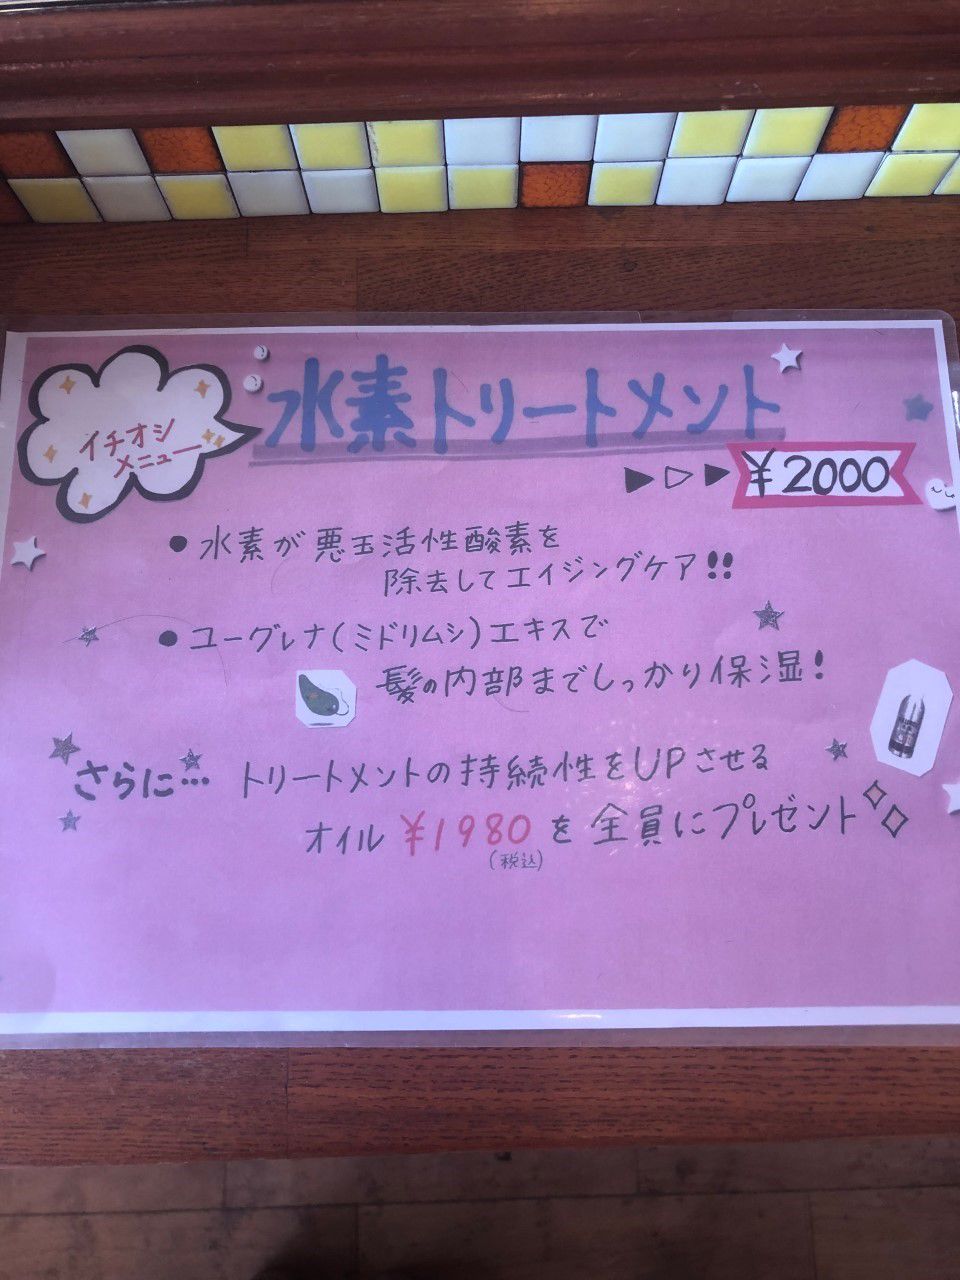 イチオシ
メニュー
水素トリートメント
¥2000
● 水素が悪玉活性酸素を
除去してエイジングケア!!
● ユーグレナ(ミドリムシ)エキスで
髪の内部までしっかり保湿!
さらに… トリートメントの持続性をUPさせる
オイル ¥1980 を 全員にプレゼント
(税込)